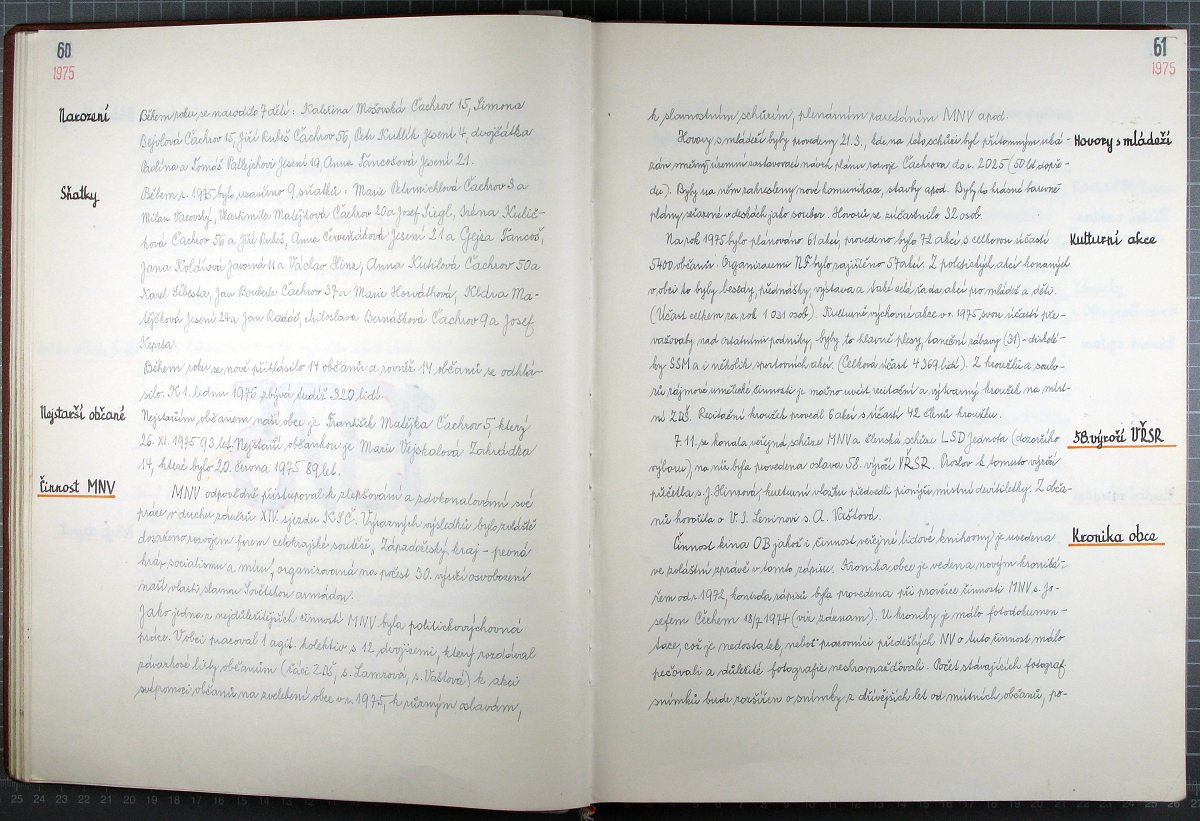 60
1975
Narození
Během roku se narodilo 7 dětí: Kateřina Mošovská Čachrov 15, Simona
Bejvlová Čachrov 15, Jiří Rubeš Čachrov 56, Petr Jesení 4, dvojčátka
Pavlína a Tomáš Jesení 19 Anna Tancošová Jesení 21.
Sňatky
Během r. 1975 bylo uzavřeno 9 sňatků: Marie Petermichlová Čachrov 3 a
Milan Vacovský, Vlastimila Matějková Čachrov 20 a Josef Siegl, Irena Kulič-
ková Čachrov 56 a Jiří Rubeš, Anna Červeňáková Jesení 21 a Gejza Tancoš,
Jana Kolářová Javorná 11 a Václav Hinz, Anna Kutilová Čachrov 50 a
Karel Sebesta, Jan Bouberle Čachrov 37 a Marie Horváthová, Ma-
tějčková Jesení 27 a Jan Radáč, Miloslava Bernášková Čachrov 9 a Josef
Keprta.
Během roku se nově přihlásilo 14 občanů a rovněž 14 občanů se odhlá-
silo. K 1. lednu 1976 zbývá tudíž 320 lidí.
Nejstarší občané
Nejstarším občanem naší obce je František Matějka Čachrov 5, který
26. XI. 1975 93 let. Nejstarší občankou je Marie Vejskalová Zahrádka
14, které bylo 20. června 1975 89 let.
Činnost MNV
MNV odpovědně přistupoval k zlepšování a zdokonalování své
práce v duchu závěrů XIV. sjezdu KSČ. Výrazných výsledků bylo zvláště
dosaženo rozvojem forem celokrajské soutěže „Západočeský kraj – pevná
hráz socialismu a míru", organizovaná na počest 30. výročí osvobození
naší vlasti slavnou Sovětskou armádou.
Jako jedna z nejdůležitějších činností MNV byla politickovýchovná
práce. V obci pracoval 1 agit. kolektiv s 12 dvojicemi, který rozdával
závazkové listy občanům (žáci ZDŠ, s. Lamrová, s. Vaštová) k akci
svépomocí občanů na zvelebení obce v r. 1975, k různým oslavám,
61
1975
k slavnostním schůzím, plenárním zasedáním MNV apod.
Hovory s mládeží
Hovory s mládeží byly provedeny 21.3., kde na této schůzi byl přítomným uká-
zán směrný územní zastavovací návrh plánu rozvoje Čachrova do r. 2025 (50 let dopře-
du). Byly na něm zakresleny nové komunikace, stavby apod. Byly to krásné barevné
plány, svázané v deskách jako soubor. Hovorů se zúčastnilo 32 osob.
Kulturní akce
Na rok 1975 bylo plánováno 61 akcí, provedeno bylo 72 akcí s celkovou účastí
5400 občanů. Organizacemi NF bylo zajištěno 57 akcí. Z politických akcí konaných
v obci to byly besedy, přednášky, výstava a také celá řada akcí pro mládež a děti.
(Účast celkem za rok 1 031 osob). Kulturně výchovné akce v r. 1975 svou účastí pře-
važovaly nad ostatními podniky, byly to hlavně plesy, taneční zábavy (31) - diskoté-
ky SSM a i několik sportovních akcí. (Celková účast 4369 lidí). Z kroužků a soubo-
rů zájmové umělecké činnosti je možno uvést recitační a výtvarný kroužek na míst-
ní ZDŠ. Recitační kroužek provedl 6 akcí s účastí 42 členů kroužku.
58. výročí VŘSR
7.11. se konala veřejná schůze MNV a členská schůze LSD Jednota (dozorčího
výboru), na níž byla provedena oslava 58. výročí VŘSR. Proslov k tomuto výročí
přečetla s. J. Hinzová, kulturní vložku předvedli pionýři místní devítiletky. Z obča-
nů hovořila o V. I. Leninovi s. A. Vaštová.
Kronika obce
Činnost kina OB jakož i činnost veřejné lidové knihovny je uvedena
ve zvláštní zprávě v tomto zápise. Kronika obce je vedena novým kroniká-
řem od r. 1972, kontrola zápisů byla provedena při prověrce činnosti MNV s. Jo-
sefem Čechem 18/7 1974 (viz záznam). U kroniky je málo fotodokumen-
tace, což je nedostatek, neboť pracovníci předešlých NV o tuto činnost málo
pečovali a důležité fotografie neshromažďovali. Počet stávajících fotograf.
snímků bude rozšířen o snímky z dřívějších let od místních občanů, po-